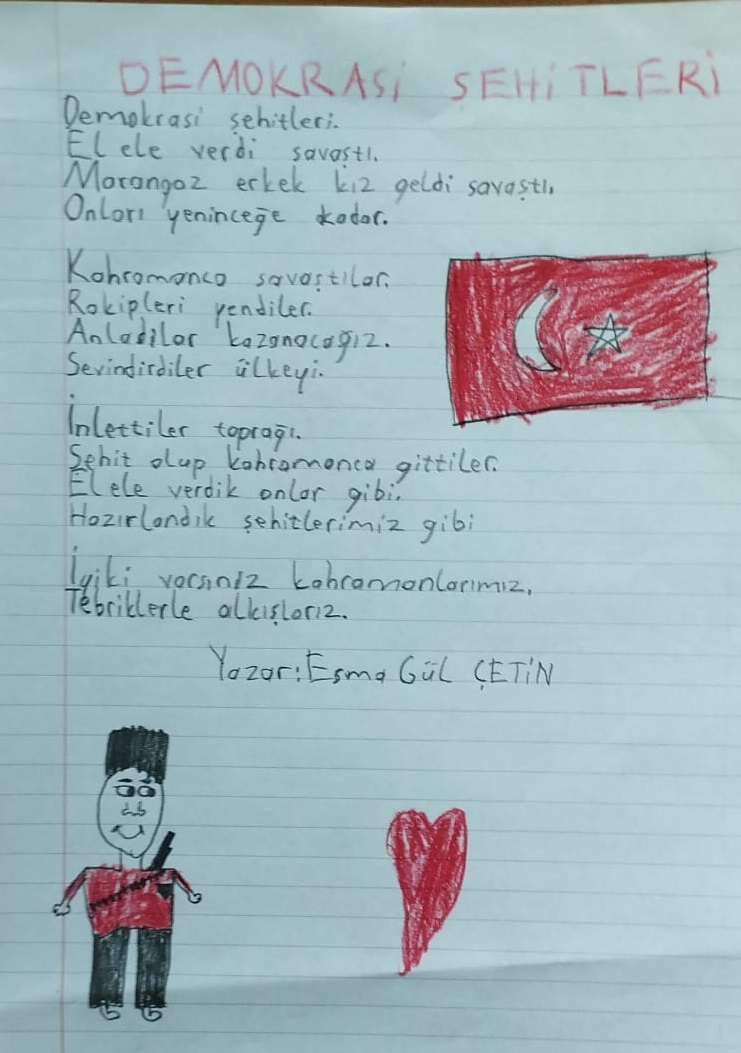 DEMOKRASİ ŞEHİTLERİ
Demokrasi şehitleri.
El ele verdi savaştı.
Marangoz erkek kız geldi savaştı,
Onları yeninceğe kadar.
Kahramanca savaştılar.
Rakipleri yendiler.
Anladılar kazanacağız.
Sevindirdiler ülkeyi.
İnlettiler toprağı.
Şehit olup kahramanca gittiler.
El ele verdik onlar gibi.
Hazırlandık şehitlerimiz gibi
İyiki varsınız kahramanlarımız,
Tebriklerle alkışlarız.
Yazar: Esma Gül ÇETİN